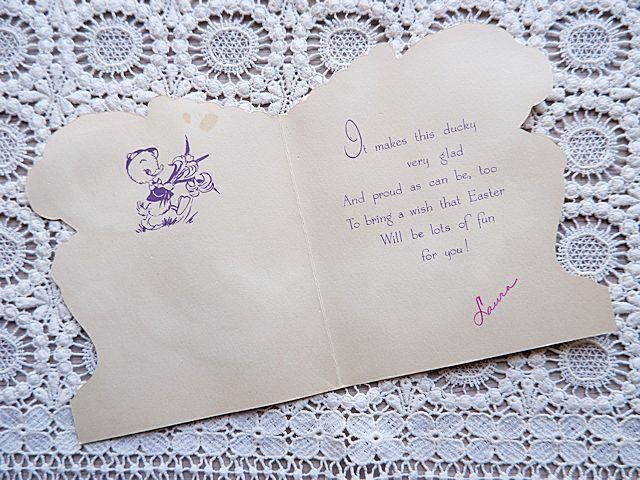 It makes this ducky
very glad
And proud as can be, too
To bring a wish that Easter
Will be lots of fun
for you!
Laura